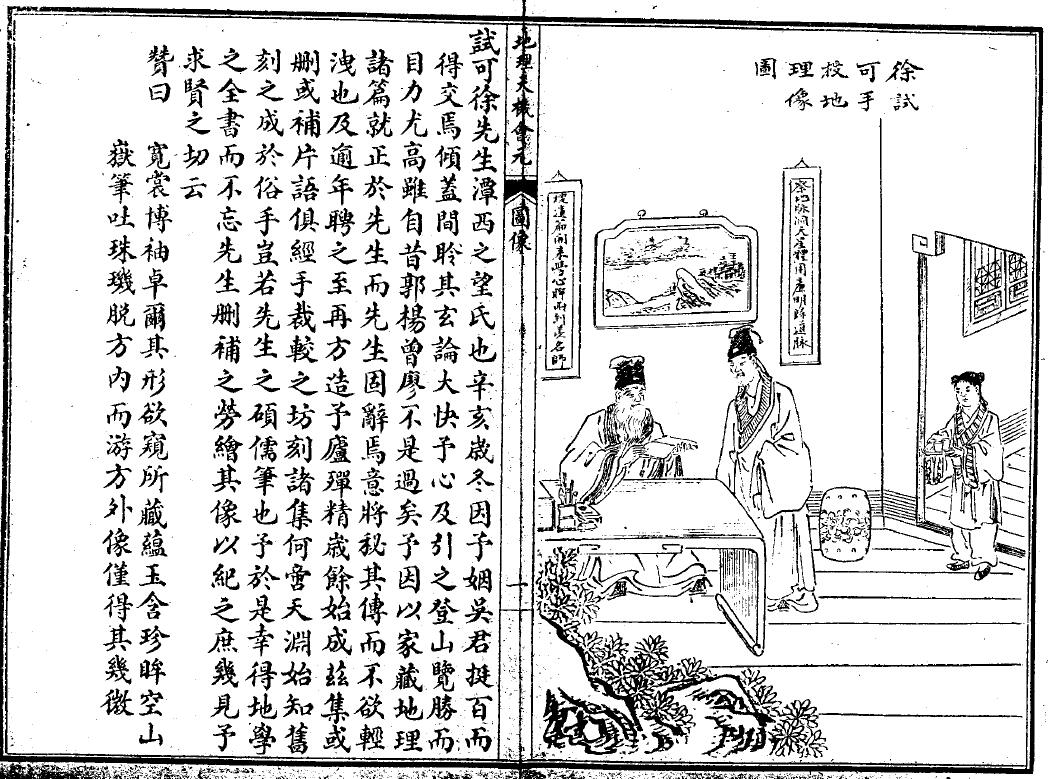 徐試
可手
授地
理像
圖
察地脉洞天星體用庶明歸道脉
地理天機會元
圖像
一
試可徐先生潭西之望氏也辛亥歲冬因予姻吳君挺百而
得交焉傾蓋間聆其玄論大快予心及引之登山覽勝而
目力尤高雖自昔郭揚曾廖不是過矣予因以家藏地理
諸篇就正於先生而先生固辭焉意將祕其傳而不欲輕
洩也及逾年聘之至再方造予廬殫精歲餘始成茲集或
刪或補片語俱經手裁較之坊刻諸集何啻天淵始知舊
刻之成於俗手豈若先生之碩儒筆也予於是幸得地學
之全書而不忘先生刪補之勞繪其像以紀之庶幾見予
求賢之切云
贊曰
寬裳博袖卓爾其形欲窺所藏蘊玉含珍眸空山
嶽筆吐珠璣脱方內而游方外像僅得其幾微